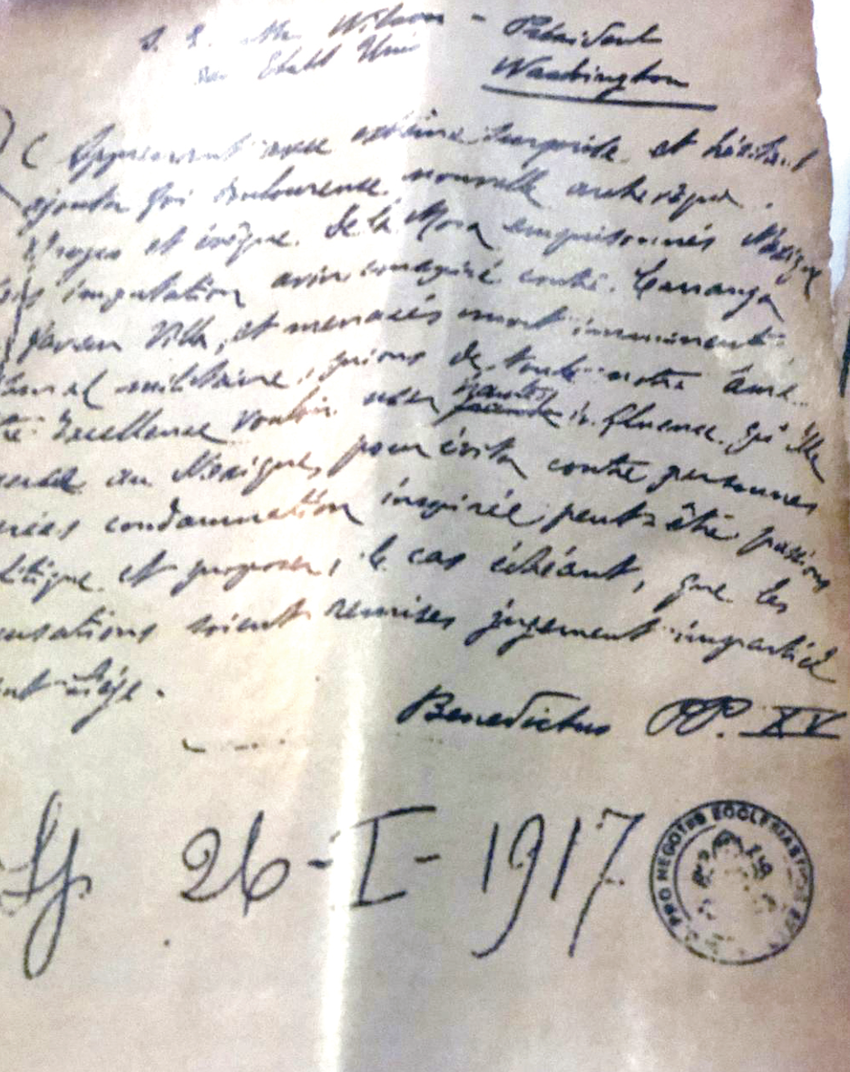 S. E. Mr Wilson - Président
des Etats Unis
Washington
Apprenant avec extrême surprise et hésitant
ajouter foi douloureuse nouvelle archevêque
et évêque de la Mora emprisonnés Mexique
imputation avoir conspiré contre Carranza
Villa, et menacés mort imminente
militaire, prions de toute notre âme
Excellence vouloir user hautes influence qu'Elle
au Mexique, pour éviter contre personnes
condamnation inspirée peut-être passions
et proposer, le cas échéant, que les
soient remises jugement impartial
Siège.
Benedictus PP. XV
26-I-1917
PRO NEGOTIIS ECCLESIASTICIS